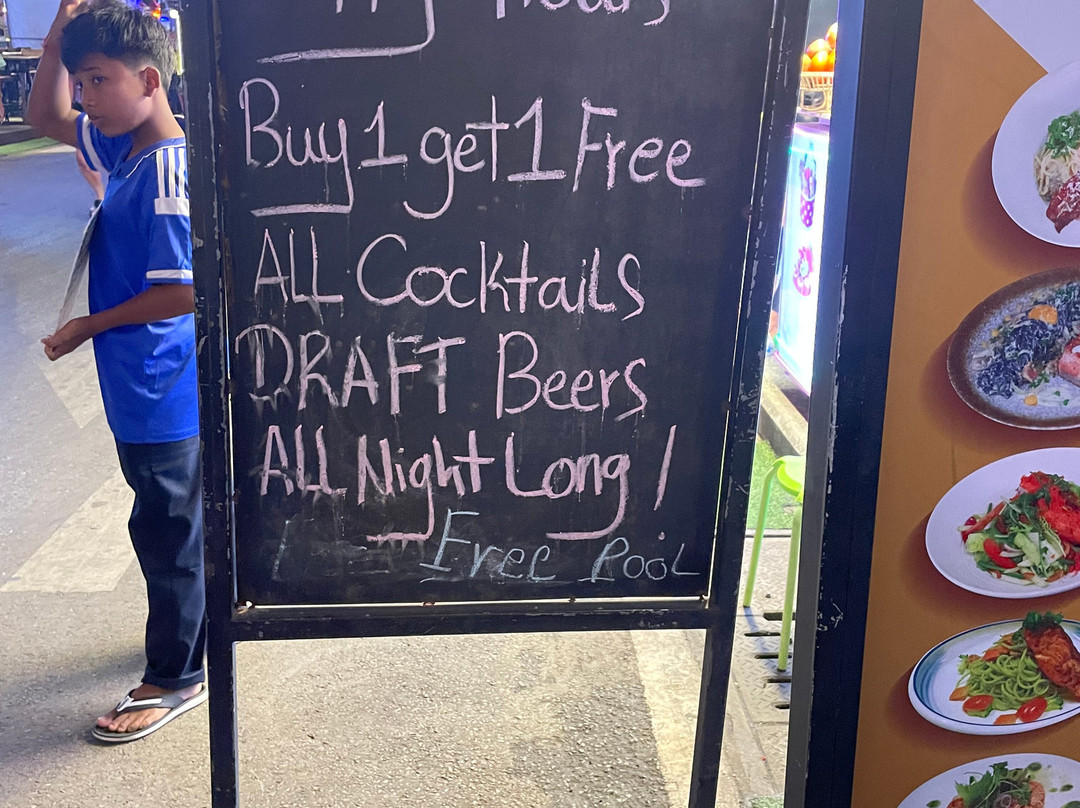 Hours
Buy 1 get 1 Free
ALL Cocktails
DRAFT Beers
ALL Night Long!
Free Pool